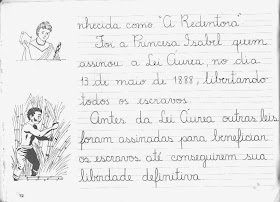 nhecida como "A Redentora"
Foi a Princesa Isabel quem
assinou a Lei Áurea, no dia
13 de maio de 1888, libertando
todos os escravos.
Antes da Lei Áurea outras leis
foram assinadas para beneficiar
os escravos até conseguirem sua
liberdade definitiva.